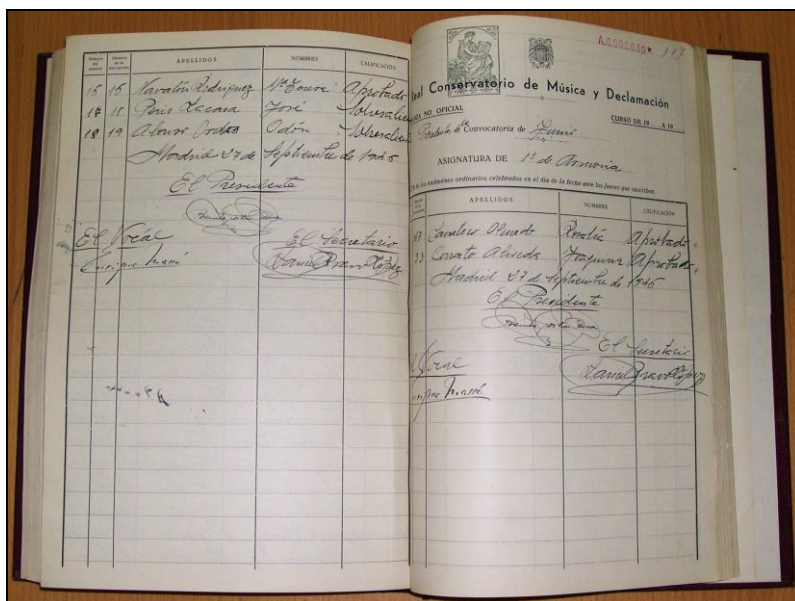 Número del examen Número de la inscripción APELLIDOS NOMBRES CALIFICACIÓN
16 15 Navarón Rodríguez Mª Aprobado
17 18 Peris Lacasa José Sobresaliente
18 19 Alonso Ordás Odón Sobresaliente
Madrid 27 de Septiembre de 1945
El Presidente
El Vocal El Secretario
Enrique Massó Daniel Bravo López
A.0002080* 187
Real Conservatorio de Música y Declamación
NO OFICIAL CURSO DE 19 A 19
Convocatoria de Junio
ASIGNATURA DE 1º de Armonía
de los exámenes ordinarios celebrados en el día de la fecha ante los jueces que suscriben.
APELLIDOS NOMBRES CALIFICACIÓN
Carretero Olmedo Rosalía Aprobado
33 Cerrato Aliseda Joaquina Aprobado
Madrid 27 de Septiembre de 1945
El Presidente
El Secretario
Vocal Daniel Bravo López
Enrique Massó